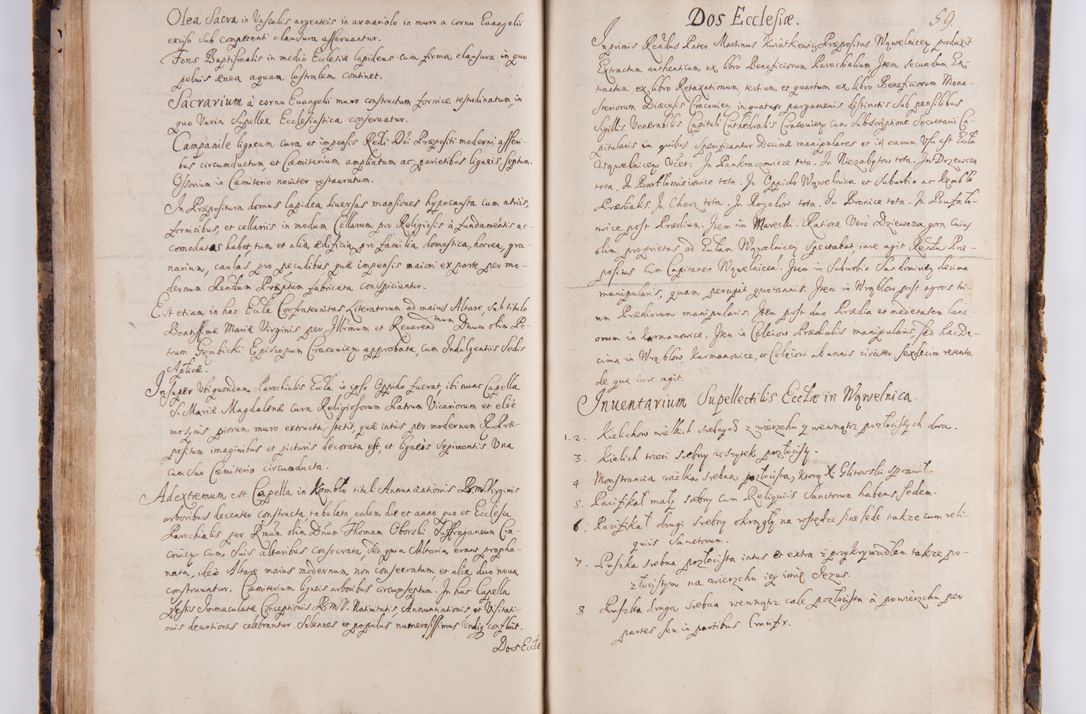 Olea Sacra in Vasculis argenteis in armariolo in muro a cornu Euangelii
exciso sub competenti clausura asseruantur.
Fons Baptismalis in medio Ecclesiæ lapideus cum firma clausura in quo
peluis ænea aquam lustralem continet.
Sacrarium à cornu Euangelii muro constructum fornice testudinatum in
quo Varia Supellex Ecclesiastica conseruatur.
Campanile ligneum cura et impensis Rndi Dni Præpositi moderni asseri-
bus circumductum et Cæmiterium ampliatum ac parietibus ligneis septum.
Ossorium in Cæmiterio nouiter restauratum.
In Præpositura domus lapidea diuersas mansiones hypocausta cum atriis,
fornicibus, et cellariis in modum Cellarum pro Religiosis à fundamentis ac-
comodatas habet, tum et alia ædificia pro familia domestica, horrea, gra-
narium, caulas pro pecudibus quæ impensis maiori ex parte per mo-
dernum Rendum Præptum fabricata conspiciuntur.
Est etiam in hac Eccla Confraternitas Literatorum ad maius Altare sub titulo
Beatissimæ Mariæ Virginis per Illrmum et Reuerendmum Dnum olim Pe-
trum Gembicki Episcopum Cracouien approbata, cum Indulgentiis Sedis
Aplicæ.
Insuper Vbi quondam Parochialis Eccla in ipso Oppido fuerat, ibi nunc Capella
S. Mariæ Magdalenæ cura Religiosorum Patrum Vicariorum et elee-
mosynis piorum muro extructa, stetit quæ intus per modernum R. Præ-
positum imaginibus et picturis decorata est, et ligneis sepimentis Vna
cum suo Cæmiterio circumducta.
Ad extremum est Capella in Kęmbło tituli Annunciationis B.M. Virginis
arboribus decenter constructa tabulata eodem die et anno quo et Ecclesia
Parochialis per Rmum olim Dnum Thomam Oborski Suffraganeum Cra-
couien cum suis altaribus consecrata, sed quia Altaria erant propha-
nata, ideo Altare maius modernum non consecratum et alia duo noua
construuntur. Cæmiterium ligneis arboribus circumseptum. In hac Capella
Festis Immaculatæ Conceptionis B.M.V. Natiuitatis Annuntiationis et Visitati-
onis deuotiones celebrantur Solennes et populus numerosissimus Vndiq confluit.
Dos Eccle
Dos Ecclesiæ. 59.
Inprimis Rendus Pater Martinus Kwiatkiewicz Præpositus Wąwelnicen produxit
Extractum authenticum ex libro Beneficiorum Parochialium Item secundum Ex-
tractum ex libro Retaxationum tertium et quartum ex libro Beneficiorum Mona-
steriorum Diæcesis Cracouien in quatuor pargamenis distinctis sub pensilibus
Sigillis Venerabilis Capituli Cathedralis Cracouien cum Subscriptione Secretarii Ca-
pitularis in quibus specificantur Decimæ manipulares et in earum Vsu est Eccla
Wąwelnicen Vczt. In Pankracowice tota. In Niezabytow tota. In Drzewcza
tota. In Bartłomieiowice tota. In Oppido Wąwelnica et Suburbio ac Kęmbło
Prædialis. In Charz tota. In Rogalow tota. In Bronice tota. In Buchało-
wice post Prædium. Item in Mareczki. Ratione Vero Dziewcza, quorum cuius
olim proprietas ad Eclam Wąwelnicen spectabat, iure agit Rendus Præ-
positus Cum Capitaneo Wąwelnicen. Item in Suburbio Sandomirien decima
manipularis, quam percipit quotannis. Item in Wrąblow post agros tri-
um Prædiorum manipularis. Item post duo Prædia et medietatem lane-
orum in Karmanowice. Item in Celeiow Prædialis manipularis sed hæc De-
cima in Wrąblow Karmanowice, et Celeiow ab annis circiter sexdecim retenta
de qua iure agit.
Inuentarium Supellectilis Ecclæ in Wąwelnica.
1. 2. Kielichow wielkich srebrnych z wierzchu y wewnątrz pozłocistych dwa.
3. Kielich trzeci srebrny wszytek pozłocisty.
4. Monstrancia wielka srebrna pozłocista, ktorą X. Glitowski sprawił.
5. Pacifikał mały srebrny cum Reliquiis Sanctorum habens Sedem.
6. Pacifikał drugi srebrny okrągły na wstędze sine Sede także cum reli-
quiis Sanctorum.
7. Puszka srebrna pozłocista intus et extra z przykrywadłem także po-
złocistym na wierzchu iey imie Jezus.
8. Puszka druga srebrna wewnątrz cale pozłocista à powierzchu per
partes seu in partibus Crucifix.